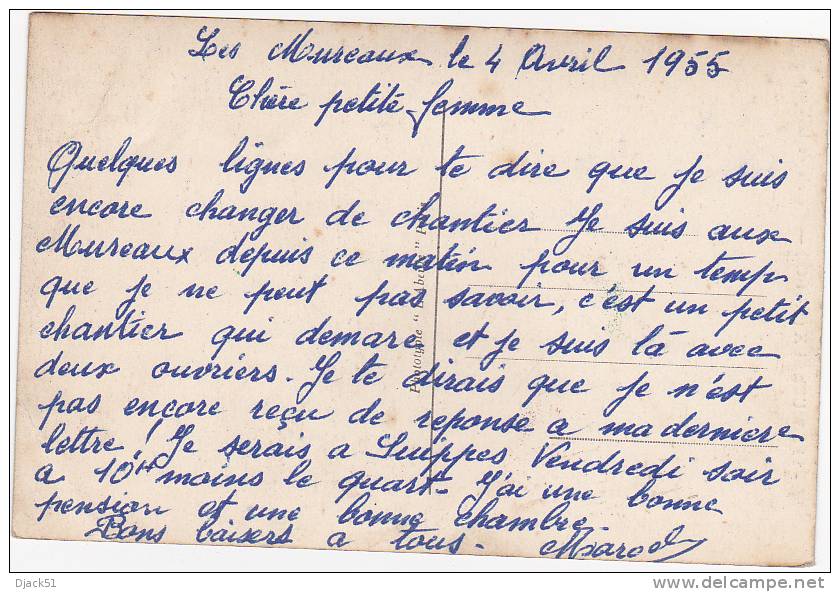 Les Mureaux le 4 Avril 1955
Chère petite femme
Quelques lignes pour te dire que je suis
encore changer de chantier Je suis aux
Mureaux depuis ce matin pour un temp
que je ne peut pas savoir, c'est un petit
chantier qui demare et je suis là avec
deux ouvriers. Je te dirais que je n'est
pas encore reçu de reponse a ma derniere
lettre! Je serais a Suippes Vendredi soir
a 10H moins le quart - J'ai une bonne
pension et une bonne chambre -
Bons baisers a tous - Marcel
Phototypie "
Djack51
www.delcampe.net